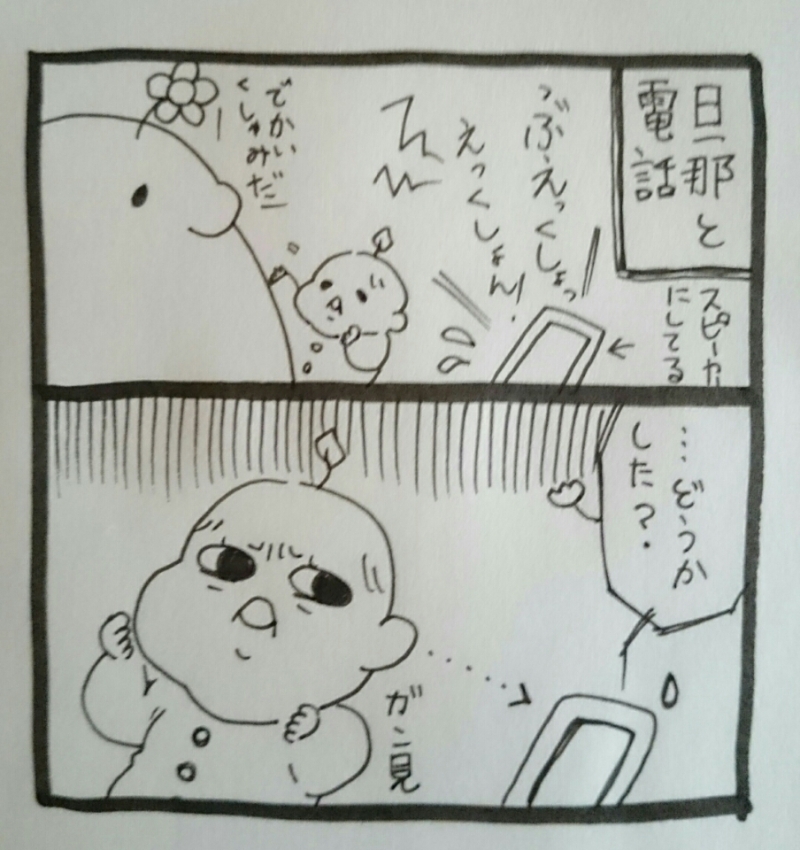 旦那と
電話
スピーカ
にしてる
っぶえっくしょっ
えっくしょん!
でかい
くしゃみだー
…どうか
した?
ガン見